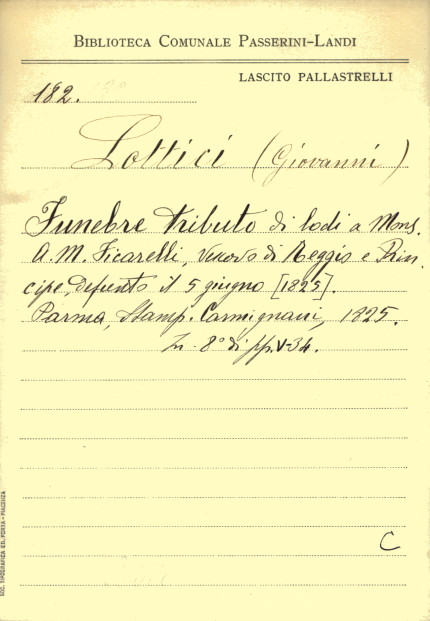 BIBLIOTECA COMUNALE PASSERINI-LANDI
LASCITO PALLASTRELLI
182.
Lottici (Giovanni)
Funebre tributo di lodi a Mons.
A. M. Ficarelli, Vescovo di Reggio e Prin-
cipe, defunto il 5 giugno [1825].
Parma, Stamp. Carmignani, 1825.
In 8° di pp. V-34.
C
SOC. TIPOGRAFICA ED. PORTA - PIACENZA